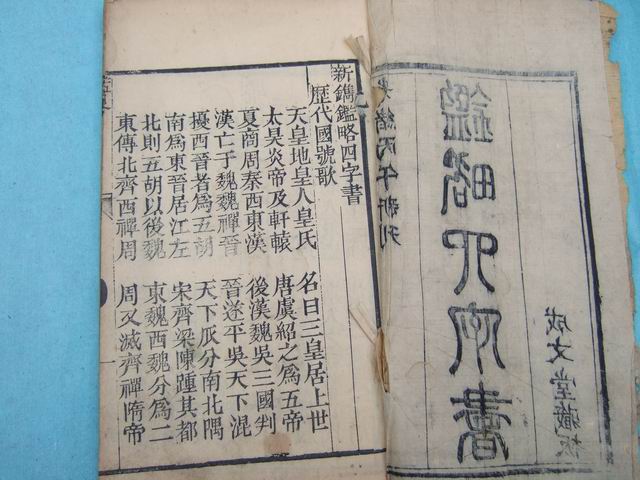 成文堂藏板
鑑略四字書
光緒丙午新刊
新鐫鑑略四字書
歷代國號歌
天皇地皇人皇氏 名曰三皇居上世
太昊炎帝及軒轅 唐虞紹之爲五帝
夏商周秦西東漢 後漢魏吳三國判
漢亡于魏魏禪晉 晉遂平吳天下混
擾西晉者爲五胡 天下瓜分南北隅
南爲東晉居江左 宋齊梁陳踵其都
北則五胡以後魏 東魏西魏分爲二
東傳北齊西禪周 周又滅齊禪隋帝